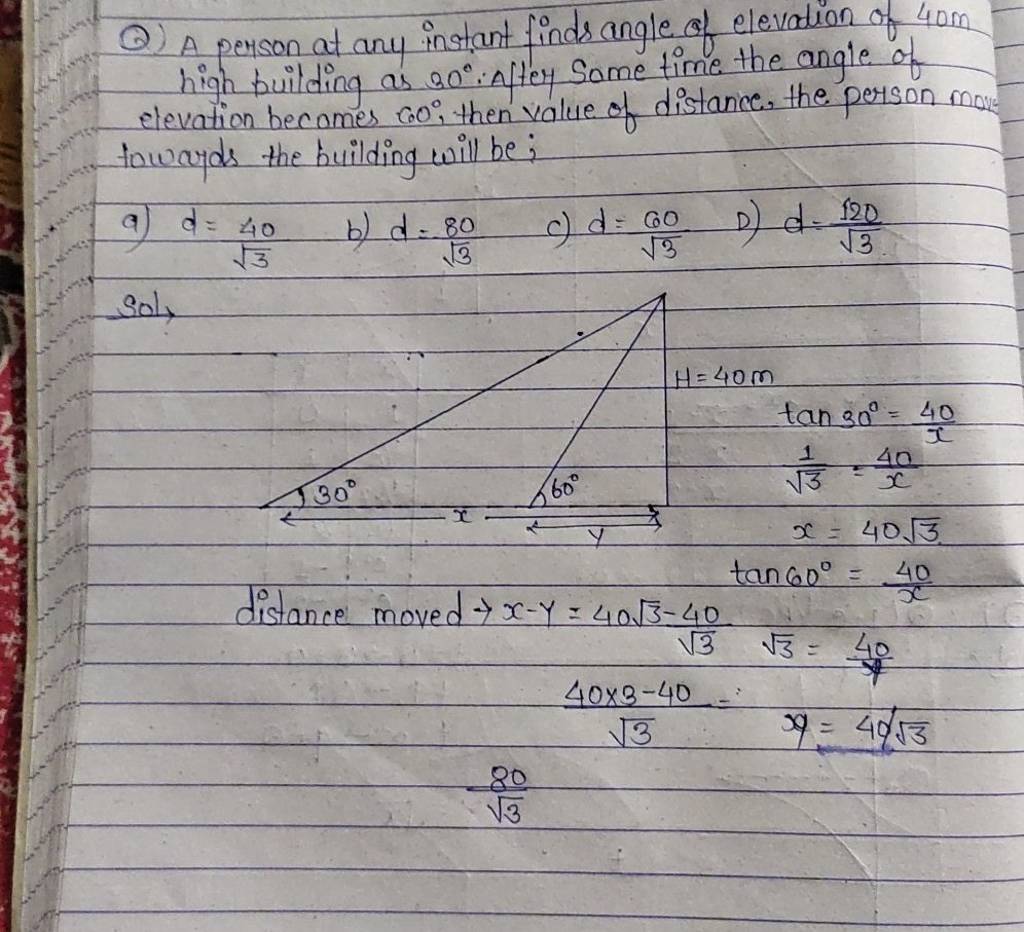 Q) A person at any instant finds angle of elevation of 40m
high building as 30°. After Some time the angle of
elevation becomes 60°, then value of distance, the person move
towards the building will be;
a) d = 40/√3 b) d = 80/√3 c) d = 60/√3 D) d = 120/√3
Sol→
H = 40m
30° 60°
x
Y
tan 30° = 40/x
1/√3 = 40/x
x = 40√3
tan 60° = 40/x
distance moved → x-Y = 40√3 - 40/√3
√3 = 40/y
40×3-40/√3 =
y = 40/√3
80/√3